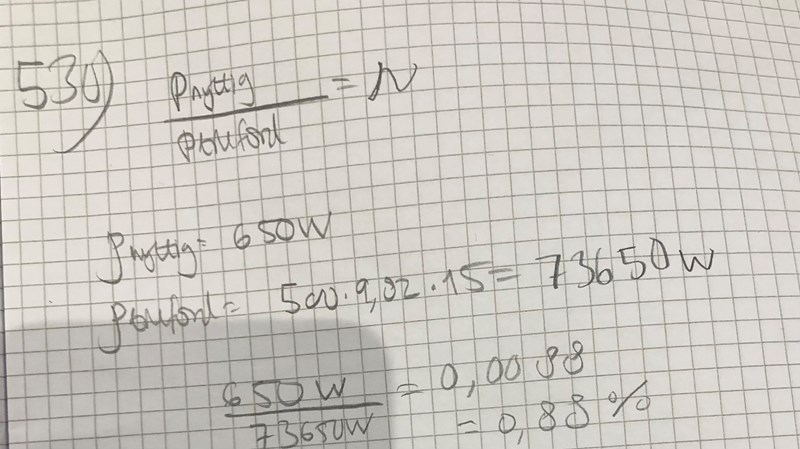 530)
Pnyttig / Ptillförd = η
Pnyttig = 650W
Ptillförd = 500·9,82·15 = 73650W
650W / 73650W = 0,0088
= 0,88 %